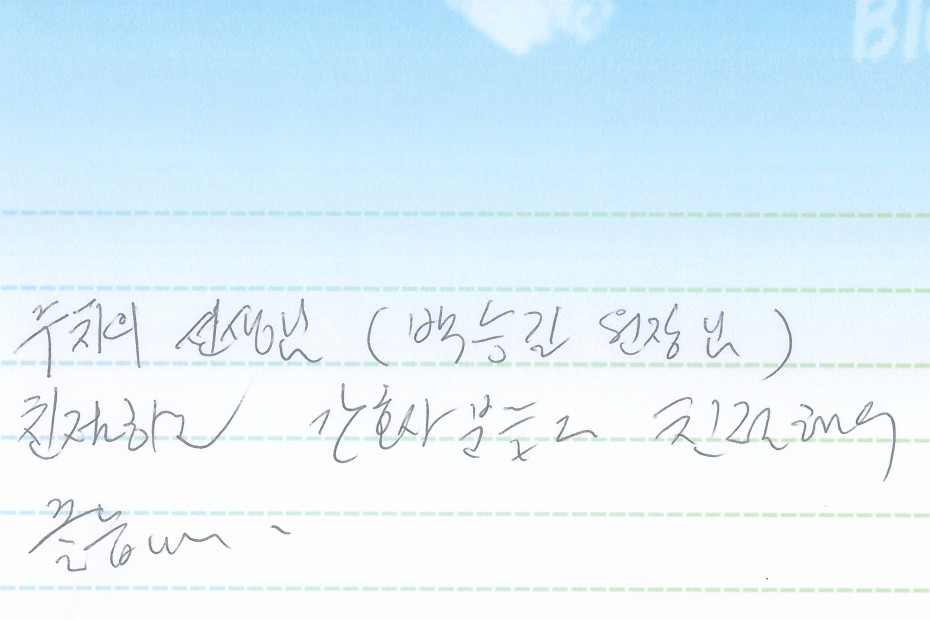 BI
주치의 선생님 (백승길 원장님)
친절하고 간호사분들도 친절해서
좋습니다.